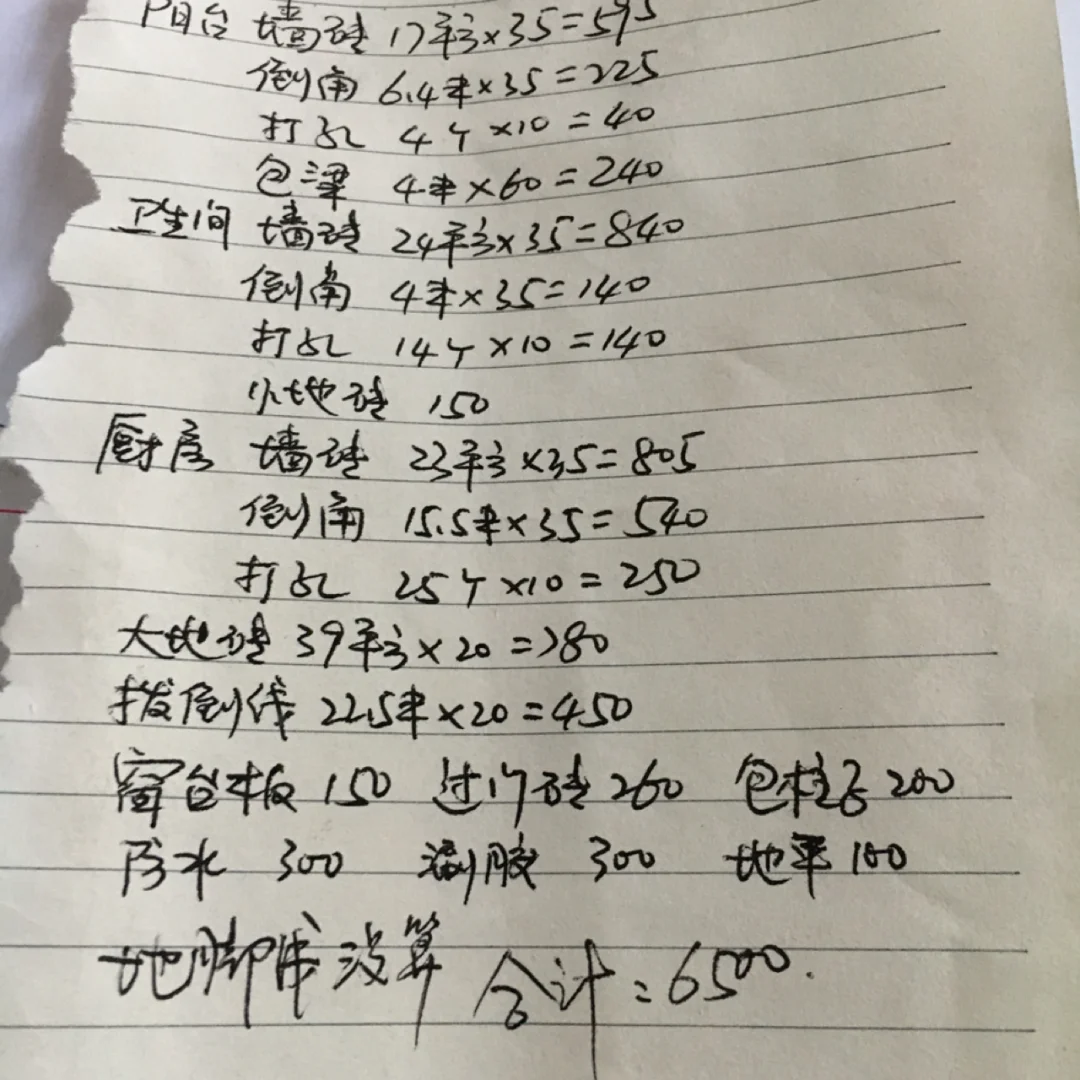 阳台 墙砖 17平方×35=595
倒角 6.4米×35=225
打孔 4个×10=40
包梁 4米×60=240
卫生间 墙砖 24平方×35=840
倒角 4米×35=140
打孔 14个×10=140
小地砖 150
厨房 墙砖 23平方×35=805
倒角 15.5米×35=540
打孔 25个×10=250
大地砖 39平方×20=780
拨倒线 22.5米×20=450
窗台板 150 过门砖 260 包柱子 200
防水 300 涮胶 300 地平 100
地脚线没算 合计:6500.